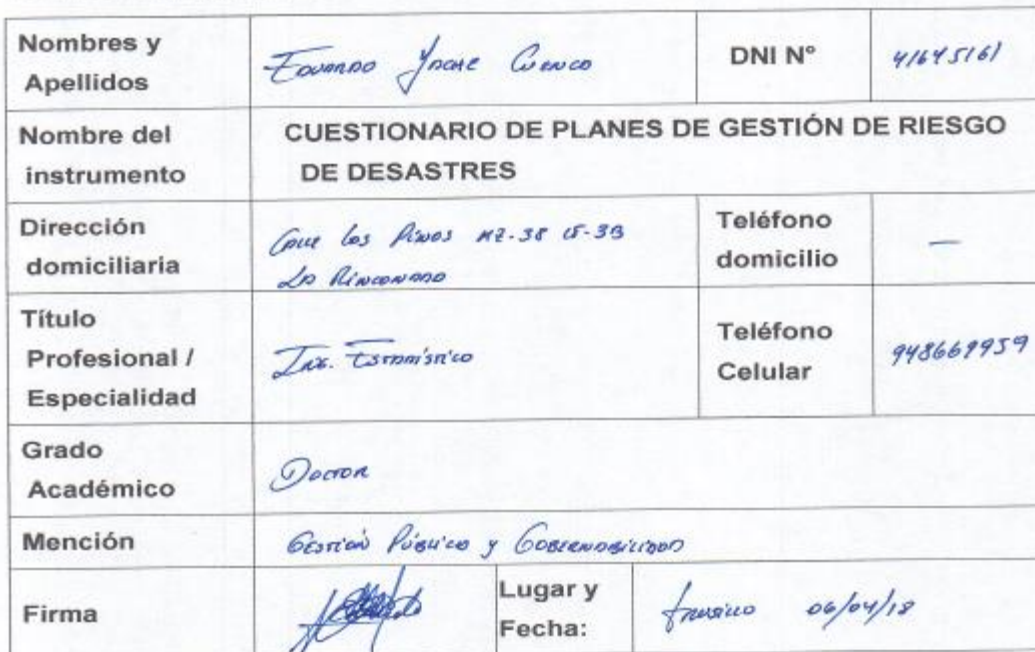 Nombres y
Apellidos
Eduardo Yache Cuenca
DNI N°
41645161
Nombre del
instrumento
CUESTIONARIO DE PLANES DE GESTIÓN DE RIESGO
DE DESASTRES
Dirección
domiciliaria
Calle los Pinos MZ-38 LT-33
La Rinconada
Teléfono
domicilio
—
Título
Profesional /
Especialidad
Ing. Estadístico
Teléfono
Celular
948669959
Grado
Académico
Doctor
Mención
Gestión Pública y Gobernabilidad
Firma
Lugar y
Fecha:
Trujillo 06/04/18